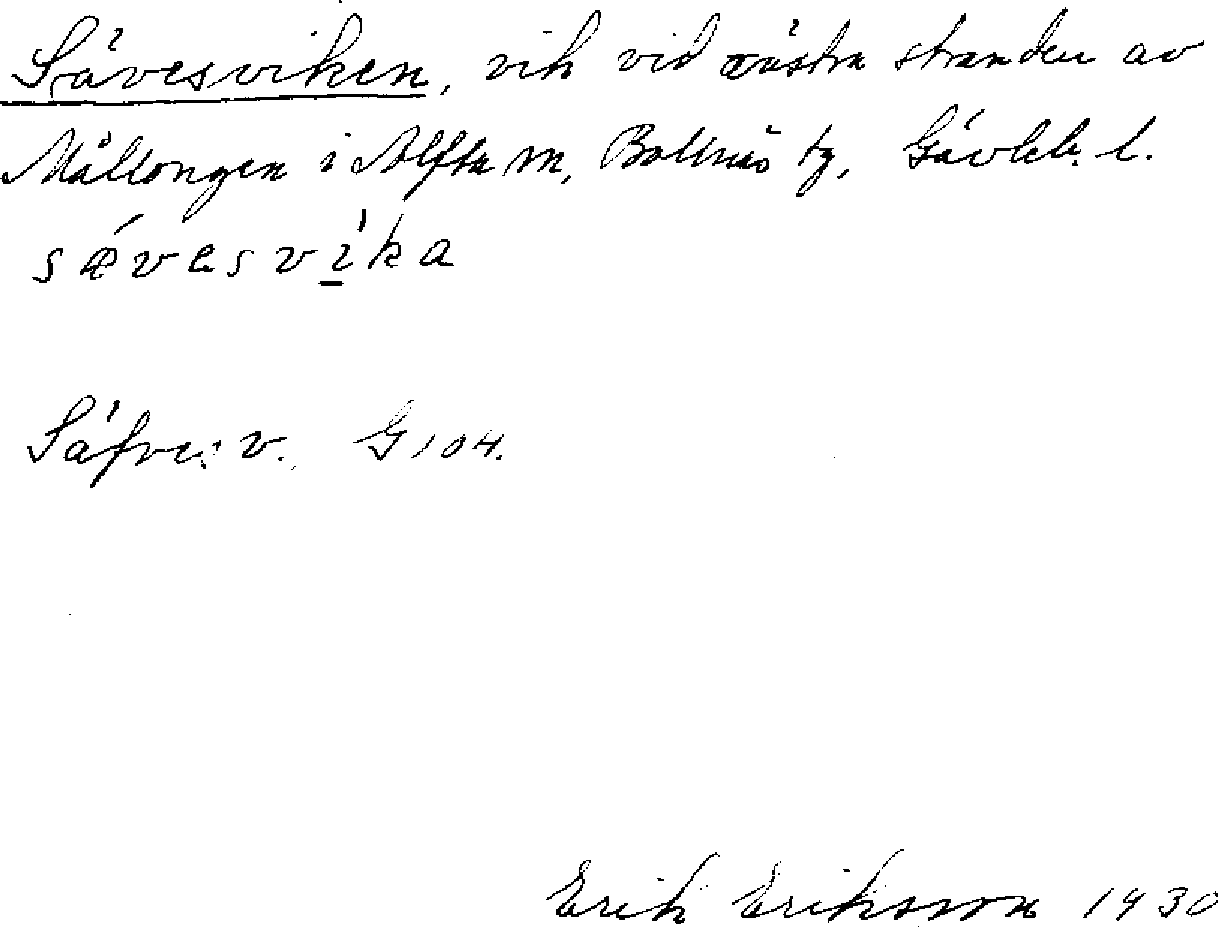 Sävesviken, vik vid västra stranden av
Mållongen i Alfta sn, Bollnäs tg, Gävleb. l.
sǽvesvi̲ka
Säfves v. G 104.
Erik Eriksson 1930